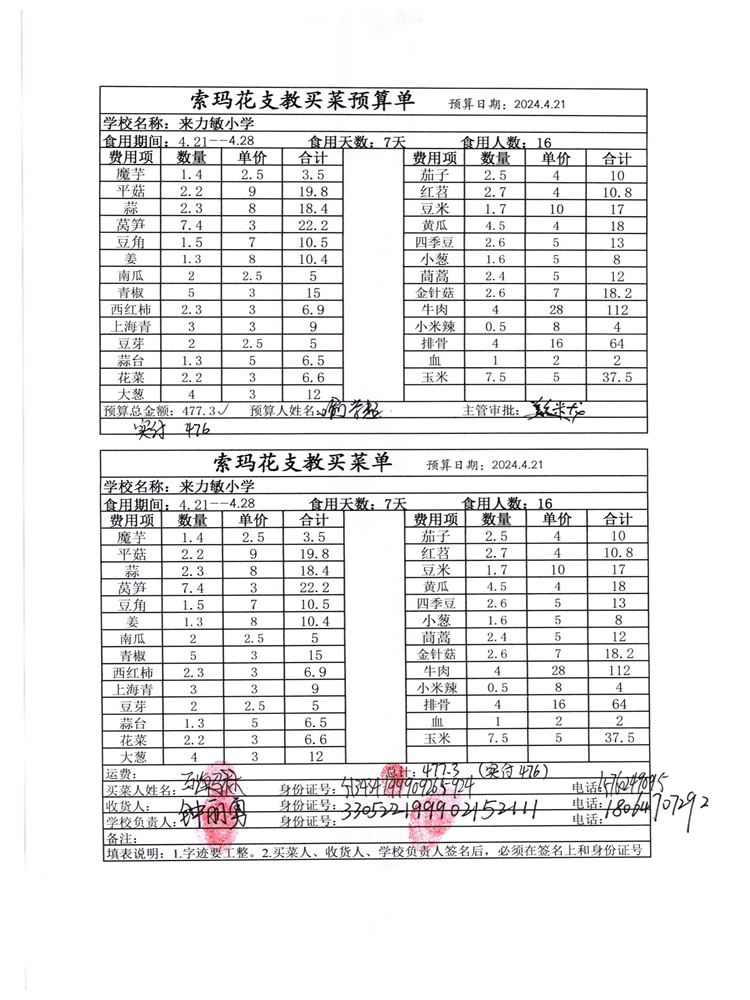 索玛花支教买菜预算单 预算日期：2024.4.21
学校名称：来力敏小学
食用期间：4.21--4.28 食用天数：7天 食用人数：16
费用项 数量 单价 合计 费用项 数量 单价 合计
魔芋 1.4 2.5 3.5 茄子 2.5 4 10
平菇 2.2 9 19.8 红苕 2.7 4 10.8
蒜 2.3 8 18.4 豆米 1.7 10 17
莴笋 7.4 3 22.2 黄瓜 4.5 4 18
豆角 1.5 7 10.5 四季豆 2.6 5 13
姜 1.3 8 10.4 小葱 1.6 5 8
南瓜 2 2.5 5 茼蒿 2.4 5 12
青椒 5 3 15 金针菇 2.6 7 18.2
西红柿 2.3 3 6.9 牛肉 4 28 112
上海青 3 3 9 小米辣 0.5 8 4
豆芽 2 2.5 5 排骨 4 16 64
蒜台 1.3 5 6.5 血 1 2 2
花菜 2.2 3 6.6 玉米 7.5 5 37.5
大葱 4 3 12
预算总金额：477.3✓ 预算人姓名： 主管审批：
实付 476
索玛花支教买菜单 预算日期：2024.4.21
学校名称：来力敏小学
食用期间：4.21--4.28 食用天数：7天 食用人数：16
费用项 数量 单价 合计 费用项 数量 单价 合计
魔芋 1.4 2.5 3.5 茄子 2.5 4 10
平菇 2.2 9 19.8 红苕 2.7 4 10.8
蒜 2.3 8 18.4 豆米 1.7 10 17
莴笋 7.4 3 22.2 黄瓜 4.5 4 18
豆角 1.5 7 10.5 四季豆 2.6 5 13
姜 1.3 8 10.4 小葱 1.6 5 8
南瓜 2 2.5 5 茼蒿 2.4 5 12
青椒 5 3 15 金针菇 2.6 7 18.2
西红柿 2.3 3 6.9 牛肉 4 28 112
上海青 3 3 9 小米辣 0.5 8 4
豆芽 2 2.5 5 排骨 4 16 64
蒜台 1.3 5 6.5 血 1 2 2
花菜 2.2 3 6.6 玉米 7.5 5 37.5
大葱 4 3 12
运费： 总计：477.3 (实付 476)
买菜人姓名： 身份证号： 电话：
收货人： 身份证号： 电话：
学校负责人：钟丽勇 身份证号：330522199902152111 电话：18064707292
备注：
填表说明：1.字迹要工整。2.买菜人、收货人、学校负责人签名后，必须在签名上和身份证号